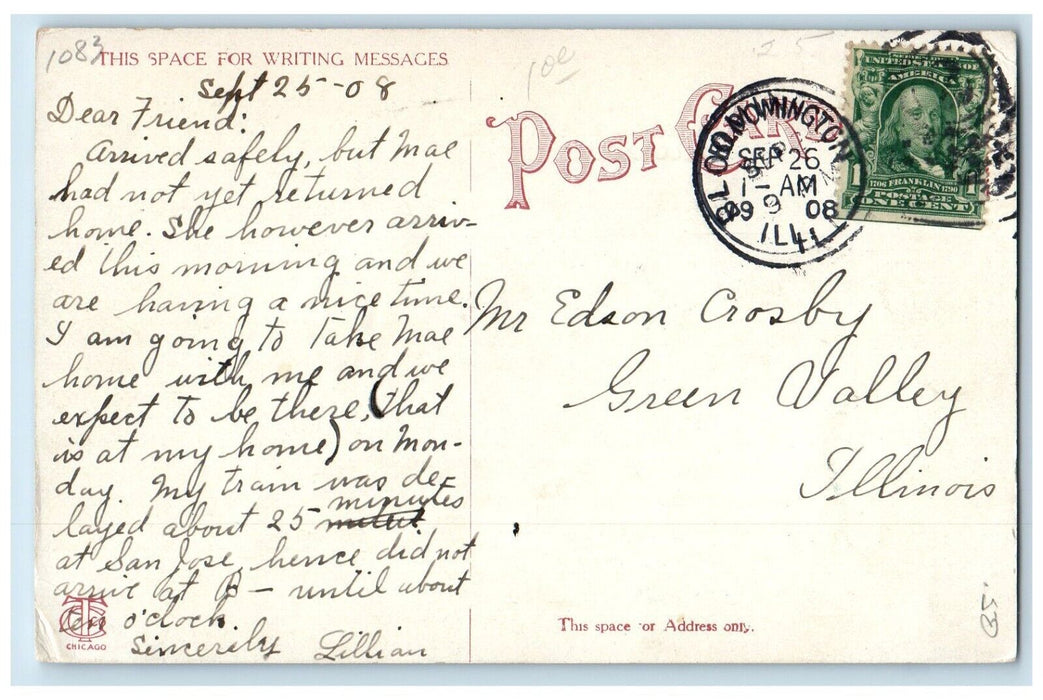 1083
THIS SPACE FOR WRITING MESSAGES
Sept 25-08
Dear Friend:
Arrived safely, but Mae
had not yet returned
home. She however arriv-
ed this morning and we
are having a nice time.
I am going to take Mae
home with me and we
expect to be there, (that
is at my home) on Mon-
day. My train was de-
layed about 25 minutes
at San Jose, hence did not
arrive at B— until about
ten o'clock.
Sincerely Lillian
CHICAGO
POST CARD
BLOOMINGTON
SEP 26
1-AM
08
ILL.
UNITED STATES OF
AMERICA
1706 FRANKLIN 1790
POSTAGE
1 ONE CENT 1
Mr Edson Crosby
Green Valley
Illinois
This space for Address only.